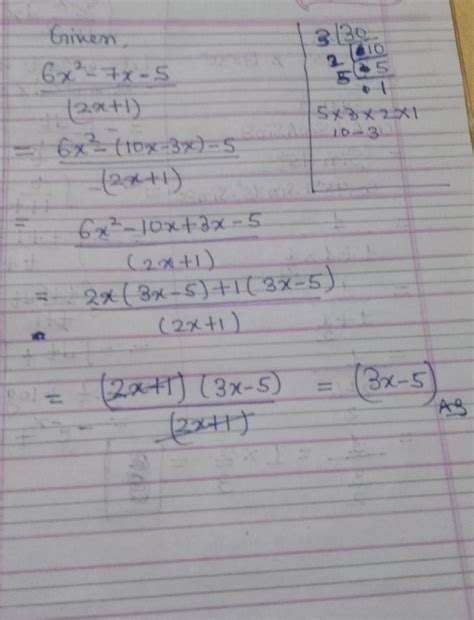 Given,
6x² - 7x - 5
(2x+1)
= 6x² - (10x - 3x) - 5
(2x+1)
= 6x² - 10x + 3x - 5
(2x+1)
= 2x(3x-5) + 1(3x-5)
(2x+1)
= (2x+1) (3x-5) = (3x-5)
(2x+1)
3 | 30
2 | 10
5 | 5
1
5×3×2×1
10-3